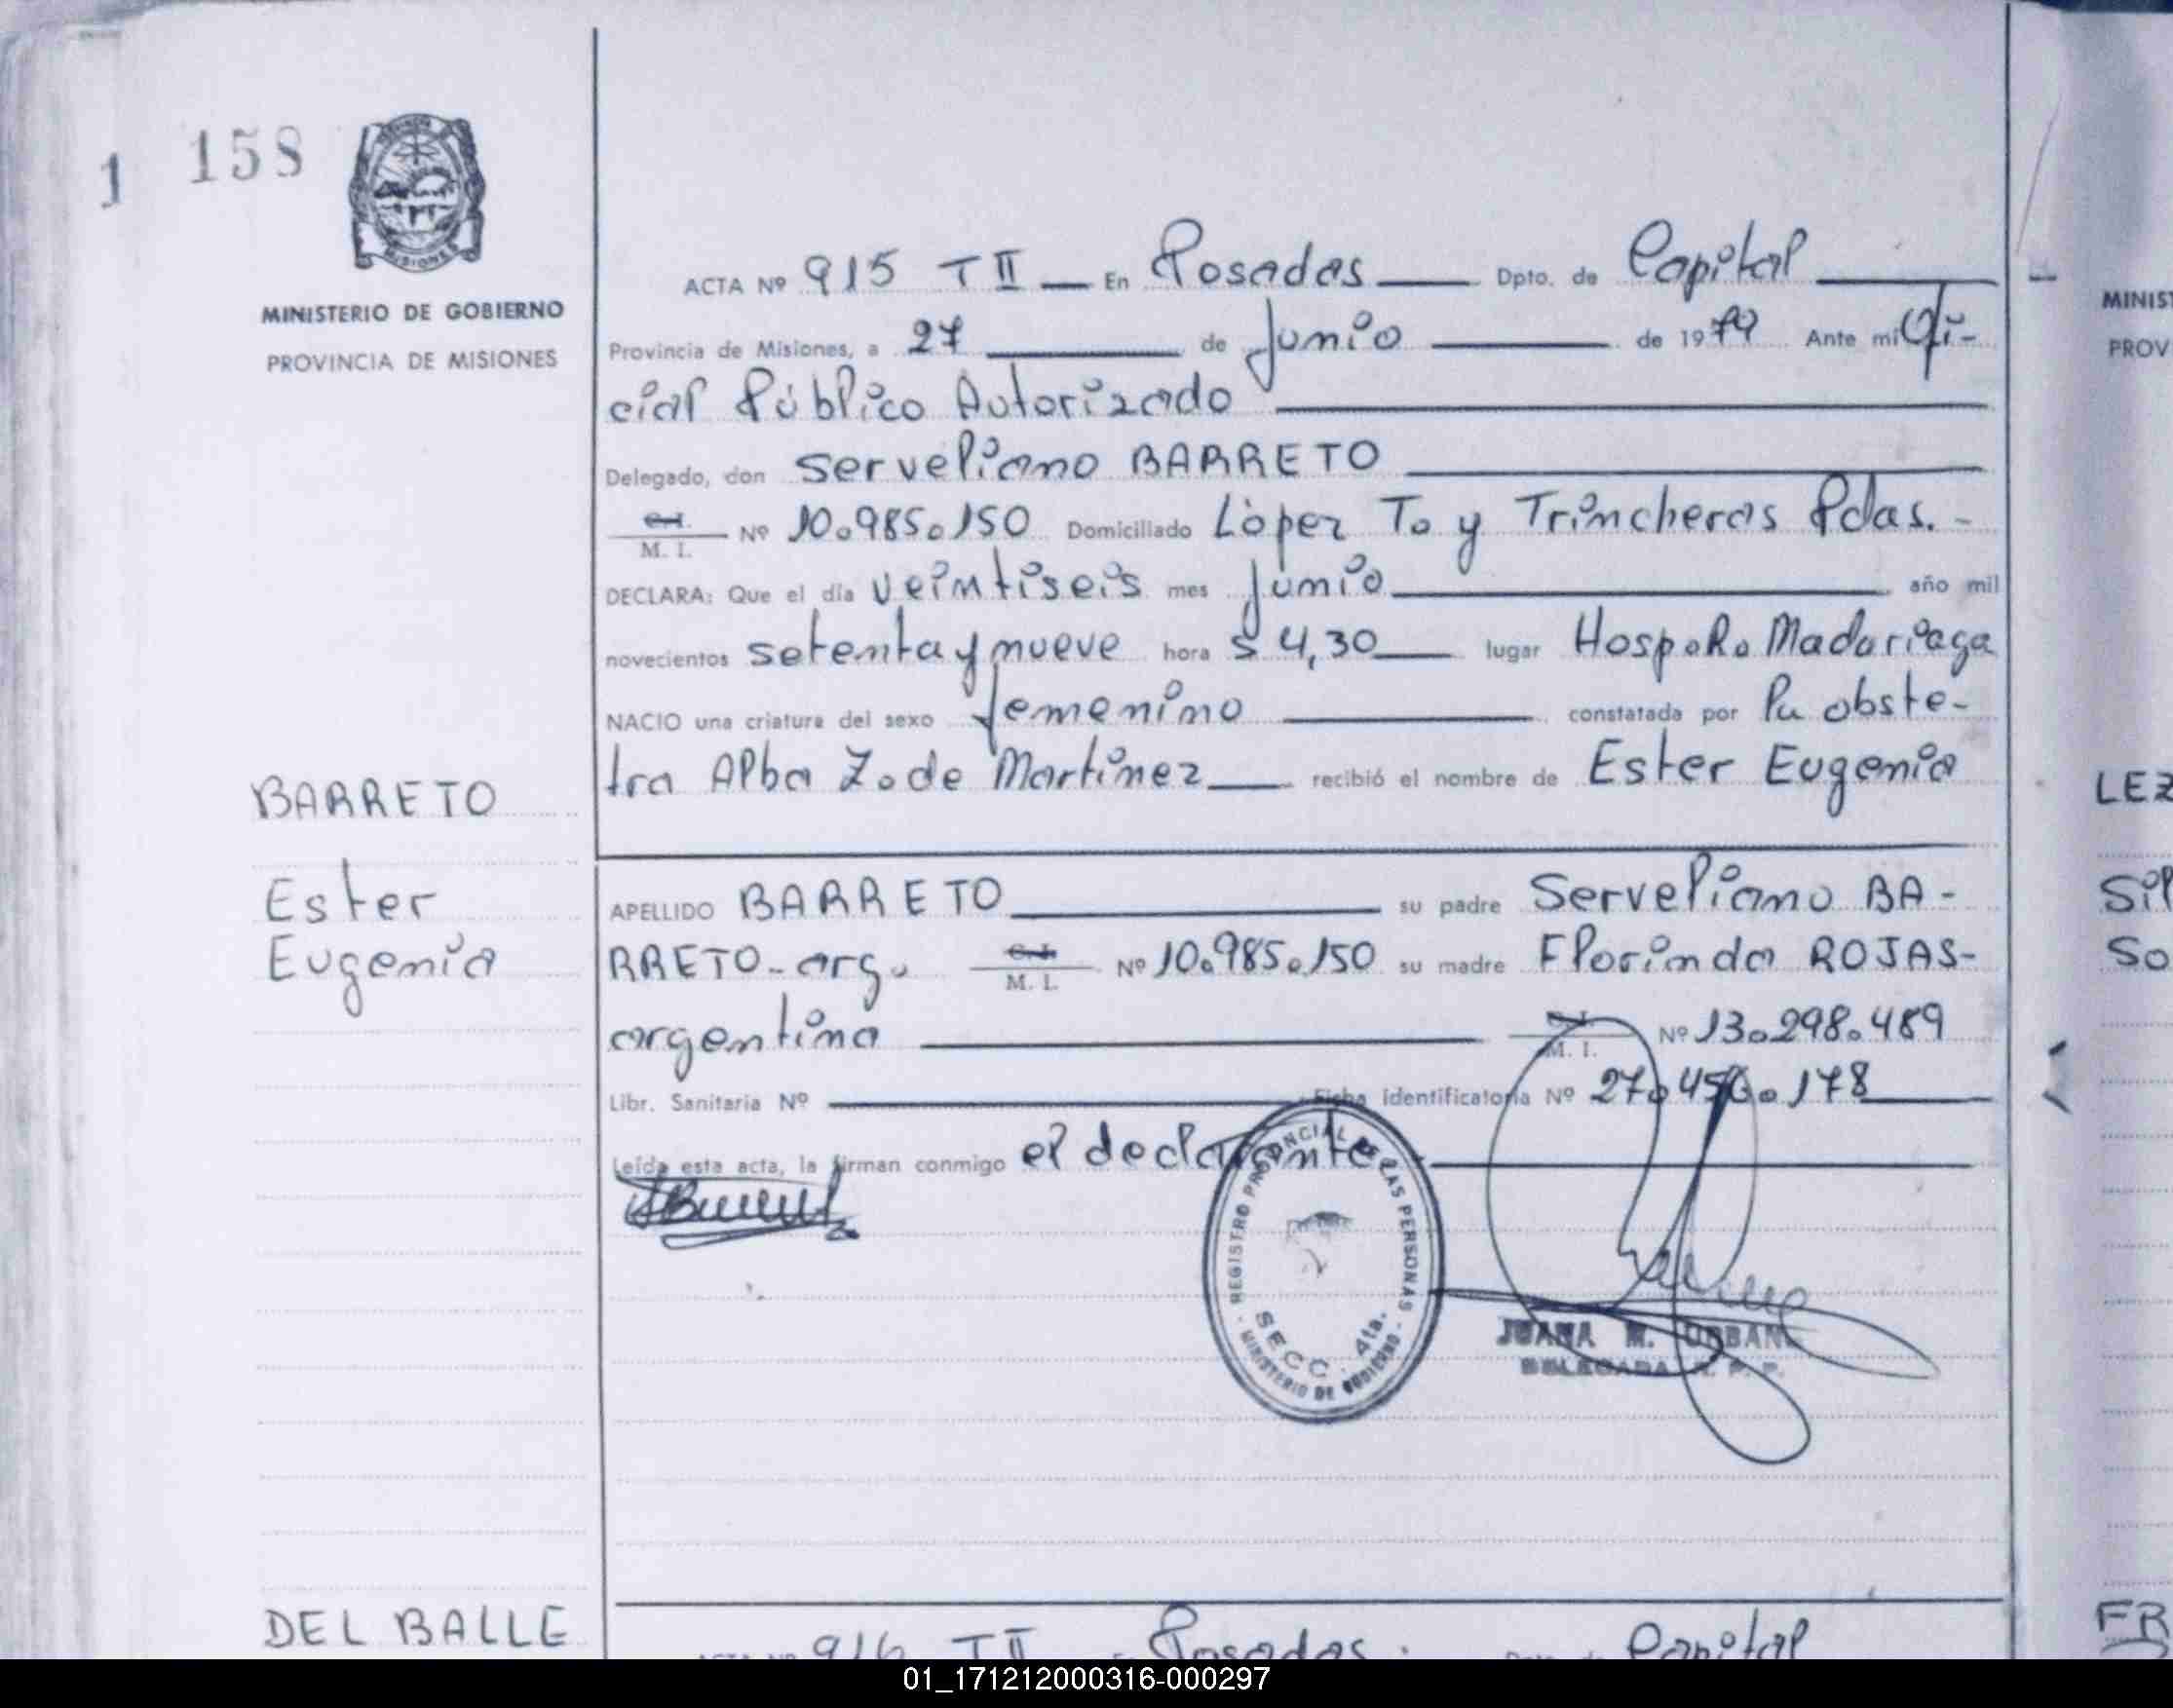 1 158
MINISTERIO DE GOBIERNO
PROVINCIA DE MISIONES
ACTA Nº 915 T II — En Posadas — Dpto. de Capital
Provincia de Misiones, a 27 de Junio de 1979 Ante mi Ofi-
cial Público Autorizado
Delegado, don Serveliano BARRETO
C.I. M. I. Nº 10.985.150 Domiciliado Lòpez To y Trincheras Pdas.-
DECLARA: Que el día veintiseis mes Junio año mil
novecientos setenta y nueve hora s 4,30 lugar Hosp.R. Madariaga
NACIO una criatura del sexo femenino constatada por la obste-
tra Alba Z. de Martinez recibió el nombre de Ester Eugenia
BARRETO
Ester
Eugenia
APELLIDO BARRETO su padre Serveliano BA-
RRETO-arg. C.I. M. I. Nº 10.985.150 su madre Florinda ROJAS-
argentina M. I. Nº 13.298.489
Libr. Sanitaria Nº Ficha identificatoria Nº 27.456.178
Leída esta acta, la firman conmigo el declarante
REGISTRO PROVINCIAL DE LAS PERSONAS
SECC. 4ta.
MINISTERIO DE GOBIERNO
JUANA M. URBAN
DELEGADA R. P. P.
DEL BALLE
ACTA Nº 916 T II En Posadas. Dpto. de Capital
MINIST
PROV
LEZ
Sil
So
FR
01_171212000316-000297